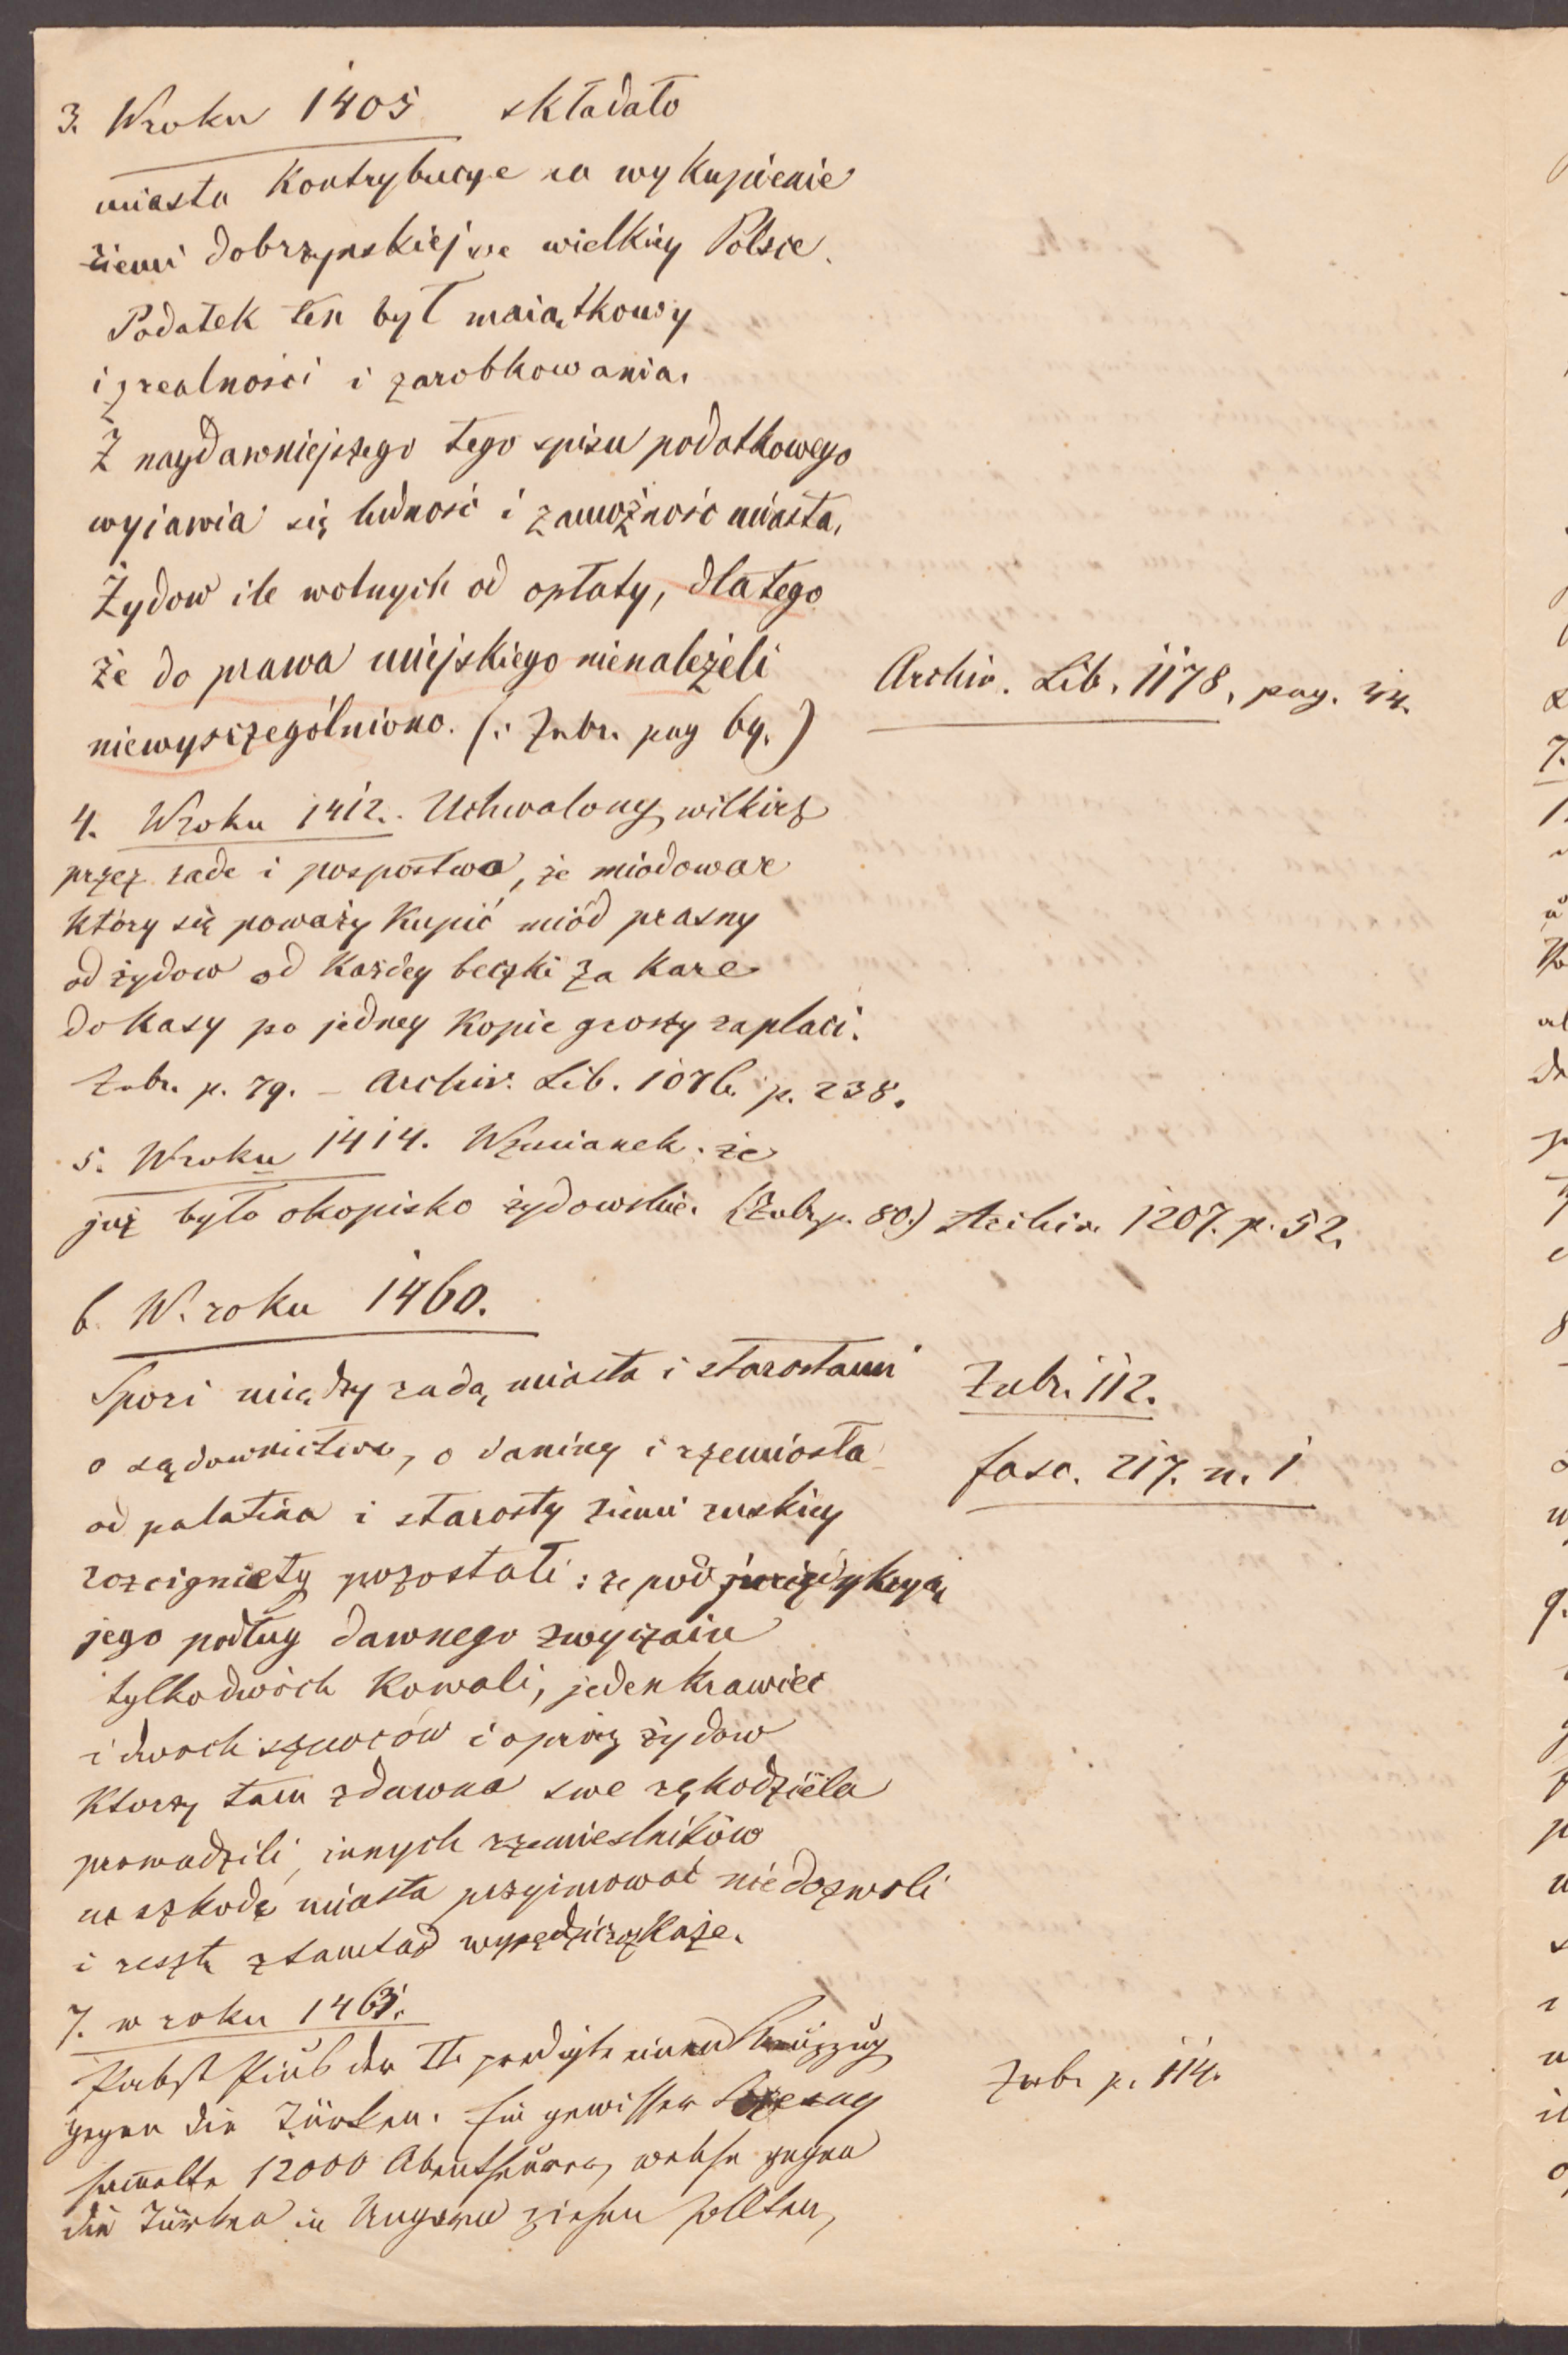 3. W roku 1405 składało
miasto Kontrybucye na wykupienie
ziemi dobrzynskiej we wielkiey Polsce.
Podatek ten był maiątkowy
i z realności i zarobkowania.
Z naydawniejszego tego spisu podatkowego
wyjawia się ludność i zamożność miasta,
Żydow ile wolnych od opłaty, dlatego
że do prawa miejskiego nienależeli
niewyszczególniono. (: Zubr. pag 69.)
Archiv. Lib. 1178, pag. 44.
4. W roku 1412. Uchwalony wilkirz
przez rade i pospostwo, że miodowar
który się poważy Kupić miód prasny
od żydow od Każdey beczki za Kare
do Kasy po jedney Kopie groszy zaplaci.
Zubr. p. 79. – Archiv. Lib. 1076. p. 238.
5. W roku 1414. Wzmianek. że
już było okopisko żydowskie. (Zubr. p. 80.) Archiv. 1207. p. 52.
6. W. roku 1460.
Spori między radą miasta i starostami
o sądownictwo, o daniny i rzemiosła
od palatina i starosty ziemi ruskiey
rozcignięty pozostali: że pod jurizdykcyą
jego podług dawnego zwyczaiu
tylko dwóch Kowali, jeden krawiec
i dwoch szewców i oprócz żydow
Ktorzy tam zdawna swe rękodzieła
prowadzili, innych rzemieslników
na szkodę miasta przyimować nie dozwoli
i resztę ztamtad wypędzić rozkaże.
Zubr. 112.
fasc. 217. n. 1
7. w roku 1463.
Pabst Pius der II. predigte einen Kreuzzug
gegen die Türken. Ein gewisser
sam̄elte 12000 Abentheurer, welche gegen
die Türken in Ungarn ziehen sollten,
Zubr p. 114.